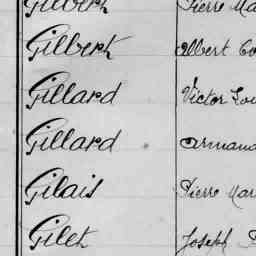 Gilbert Pierre Ma
Gilbert Albert Co
Gillard Victor Lou
Gillard Armand
Gilais Pierre Mar
Gilet Joseph